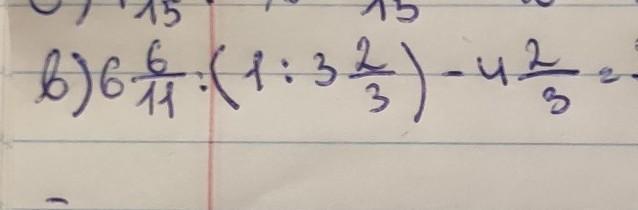 15 15
в) 6 6/11 : (1 : 3 2/3) - 4 2/3 =